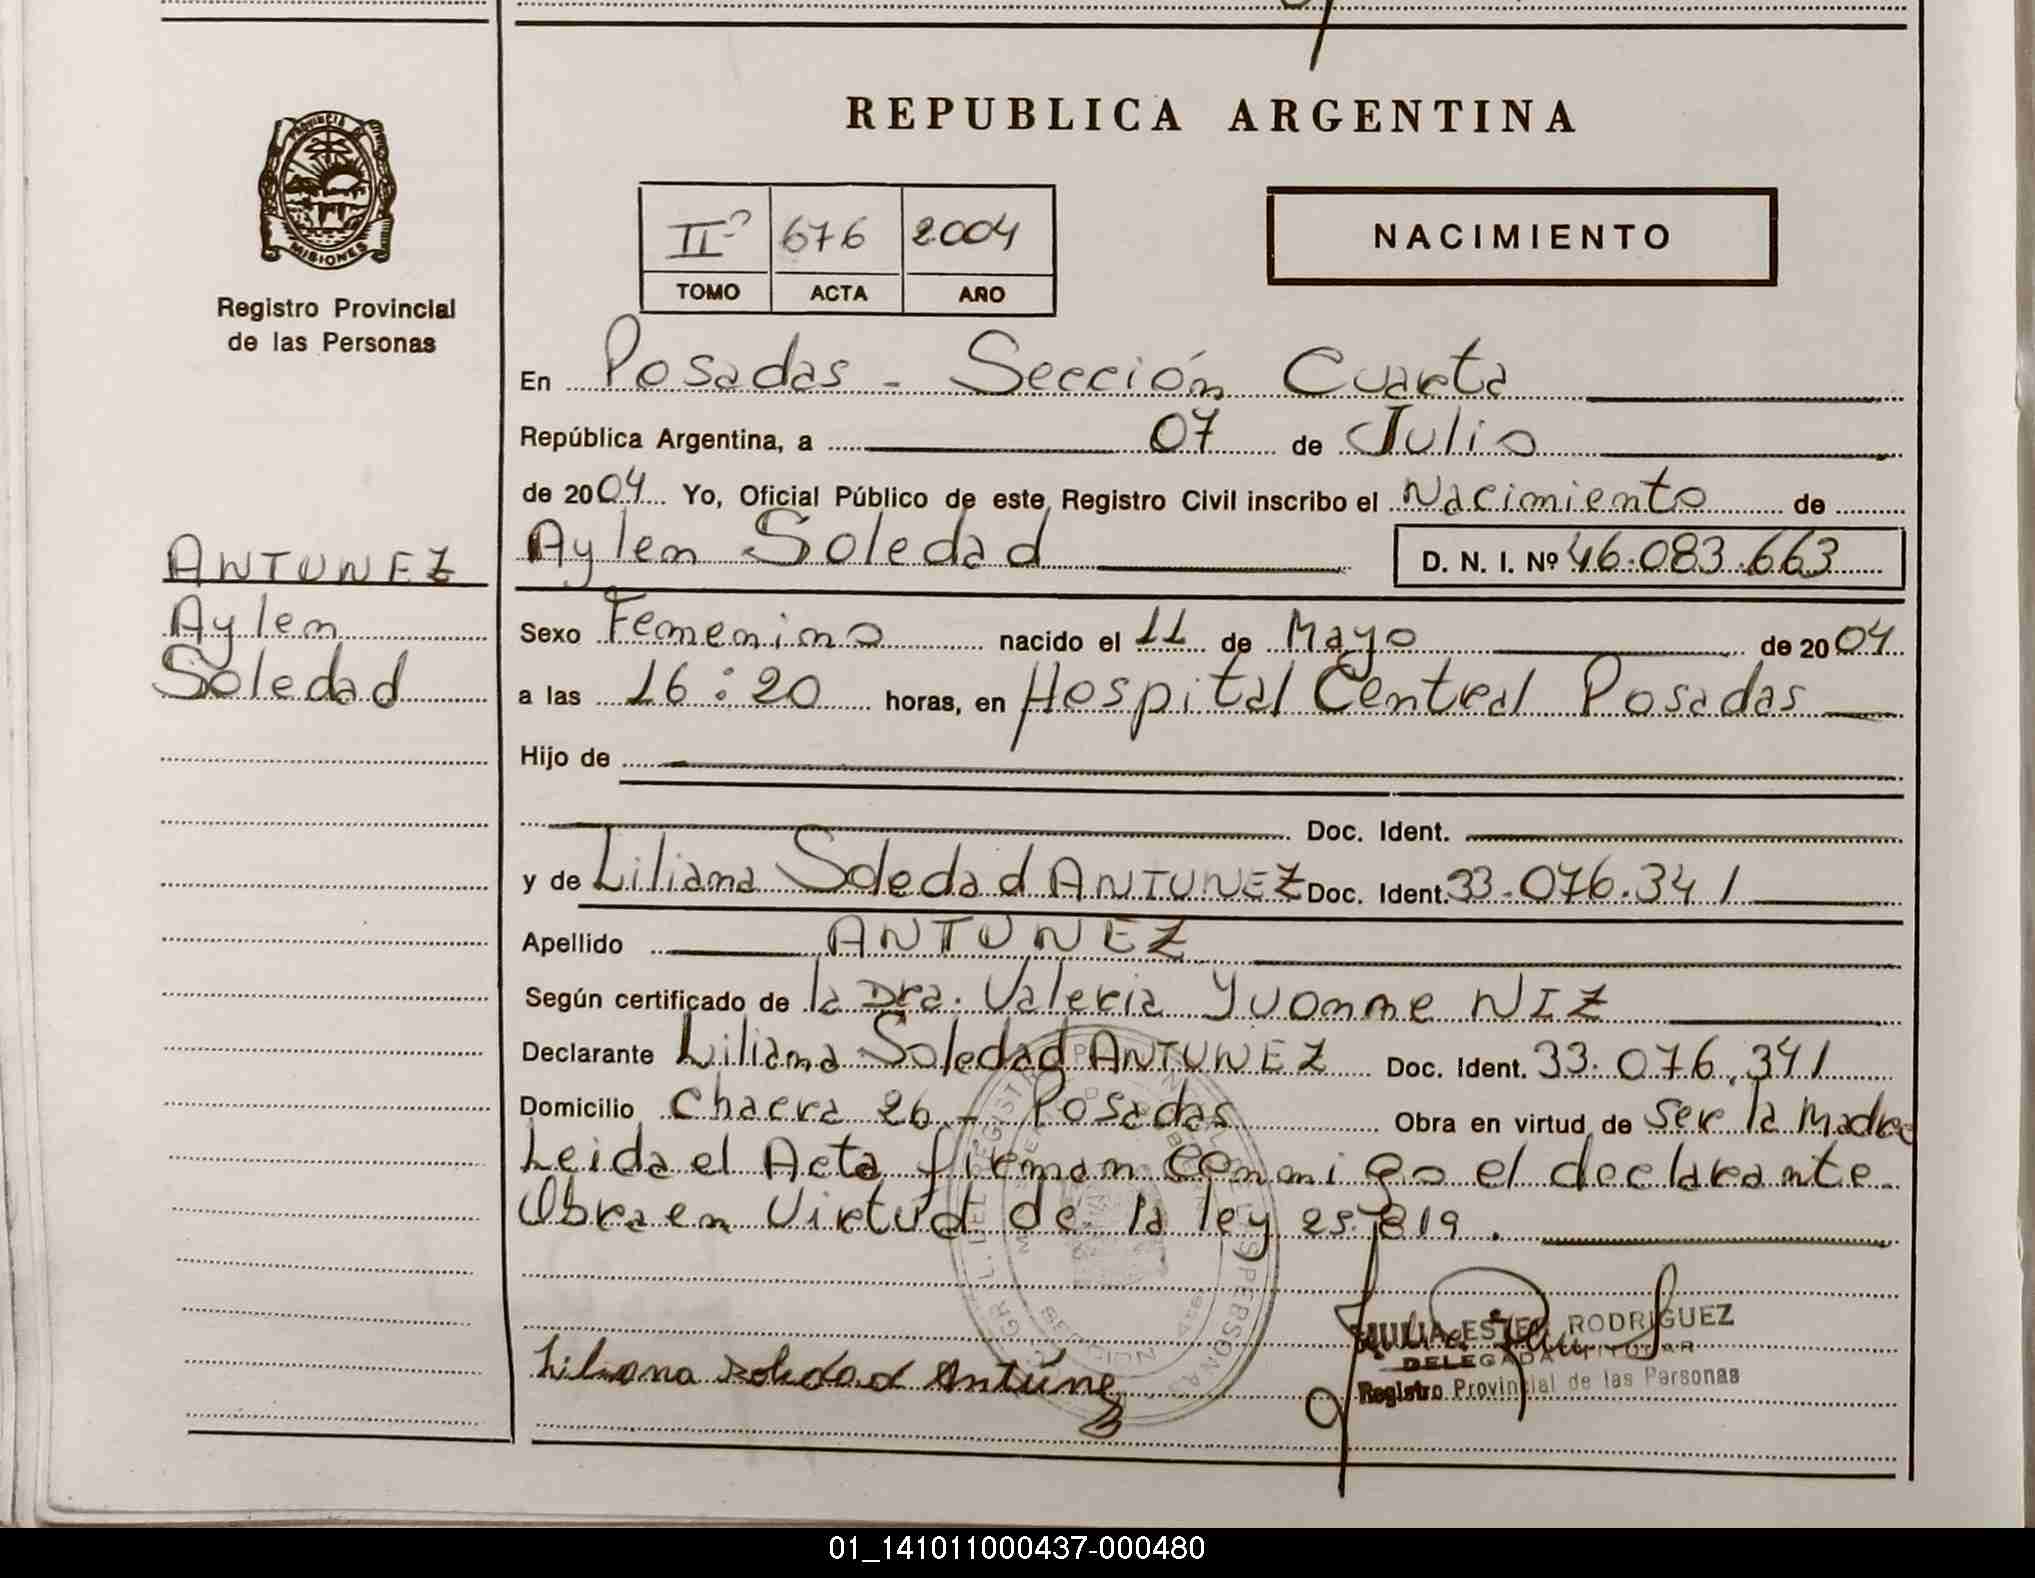 REPUBLICA ARGENTINA
PROVINCIA DE
MISIONES
Registro Provincial
de las Personas
II 676 2004
TOMO ACTA AÑO
NACIMIENTO
En Posadas - Sección Cuarta
República Argentina, a 07 de Julio
de 2004 Yo, Oficial Público de este Registro Civil inscribo el Nacimiento de
Aylen Soledad D. N. I. Nº 46.083.663
ANTUNEZ
Aylen
Soledad
Sexo Femenino nacido el 11 de Mayo de 2004
a las 16:20 horas, en Hospital Central Posadas
Hijo de
Doc. Ident.
y de Liliana Soledad ANTUNEZ Doc. Ident. 33.076.341
Apellido ANTUNEZ
Según certificado de la Dra. Valeria Yvonne NIZ
Declarante Liliana Soledad ANTUNEZ Doc. Ident. 33.076.341
Domicilio Chacra 26 - Posadas Obra en virtud de ser la Madre
Leida el Acta firman conmigo el declarante.
Obra en Virtud de la ley 25.819.
Liliana Soledad Antúnez
JULIA ESTER RODRIGUEZ
DELEGADA TITULAR
Registro Provincial de las Personas
01_141011000437-000480